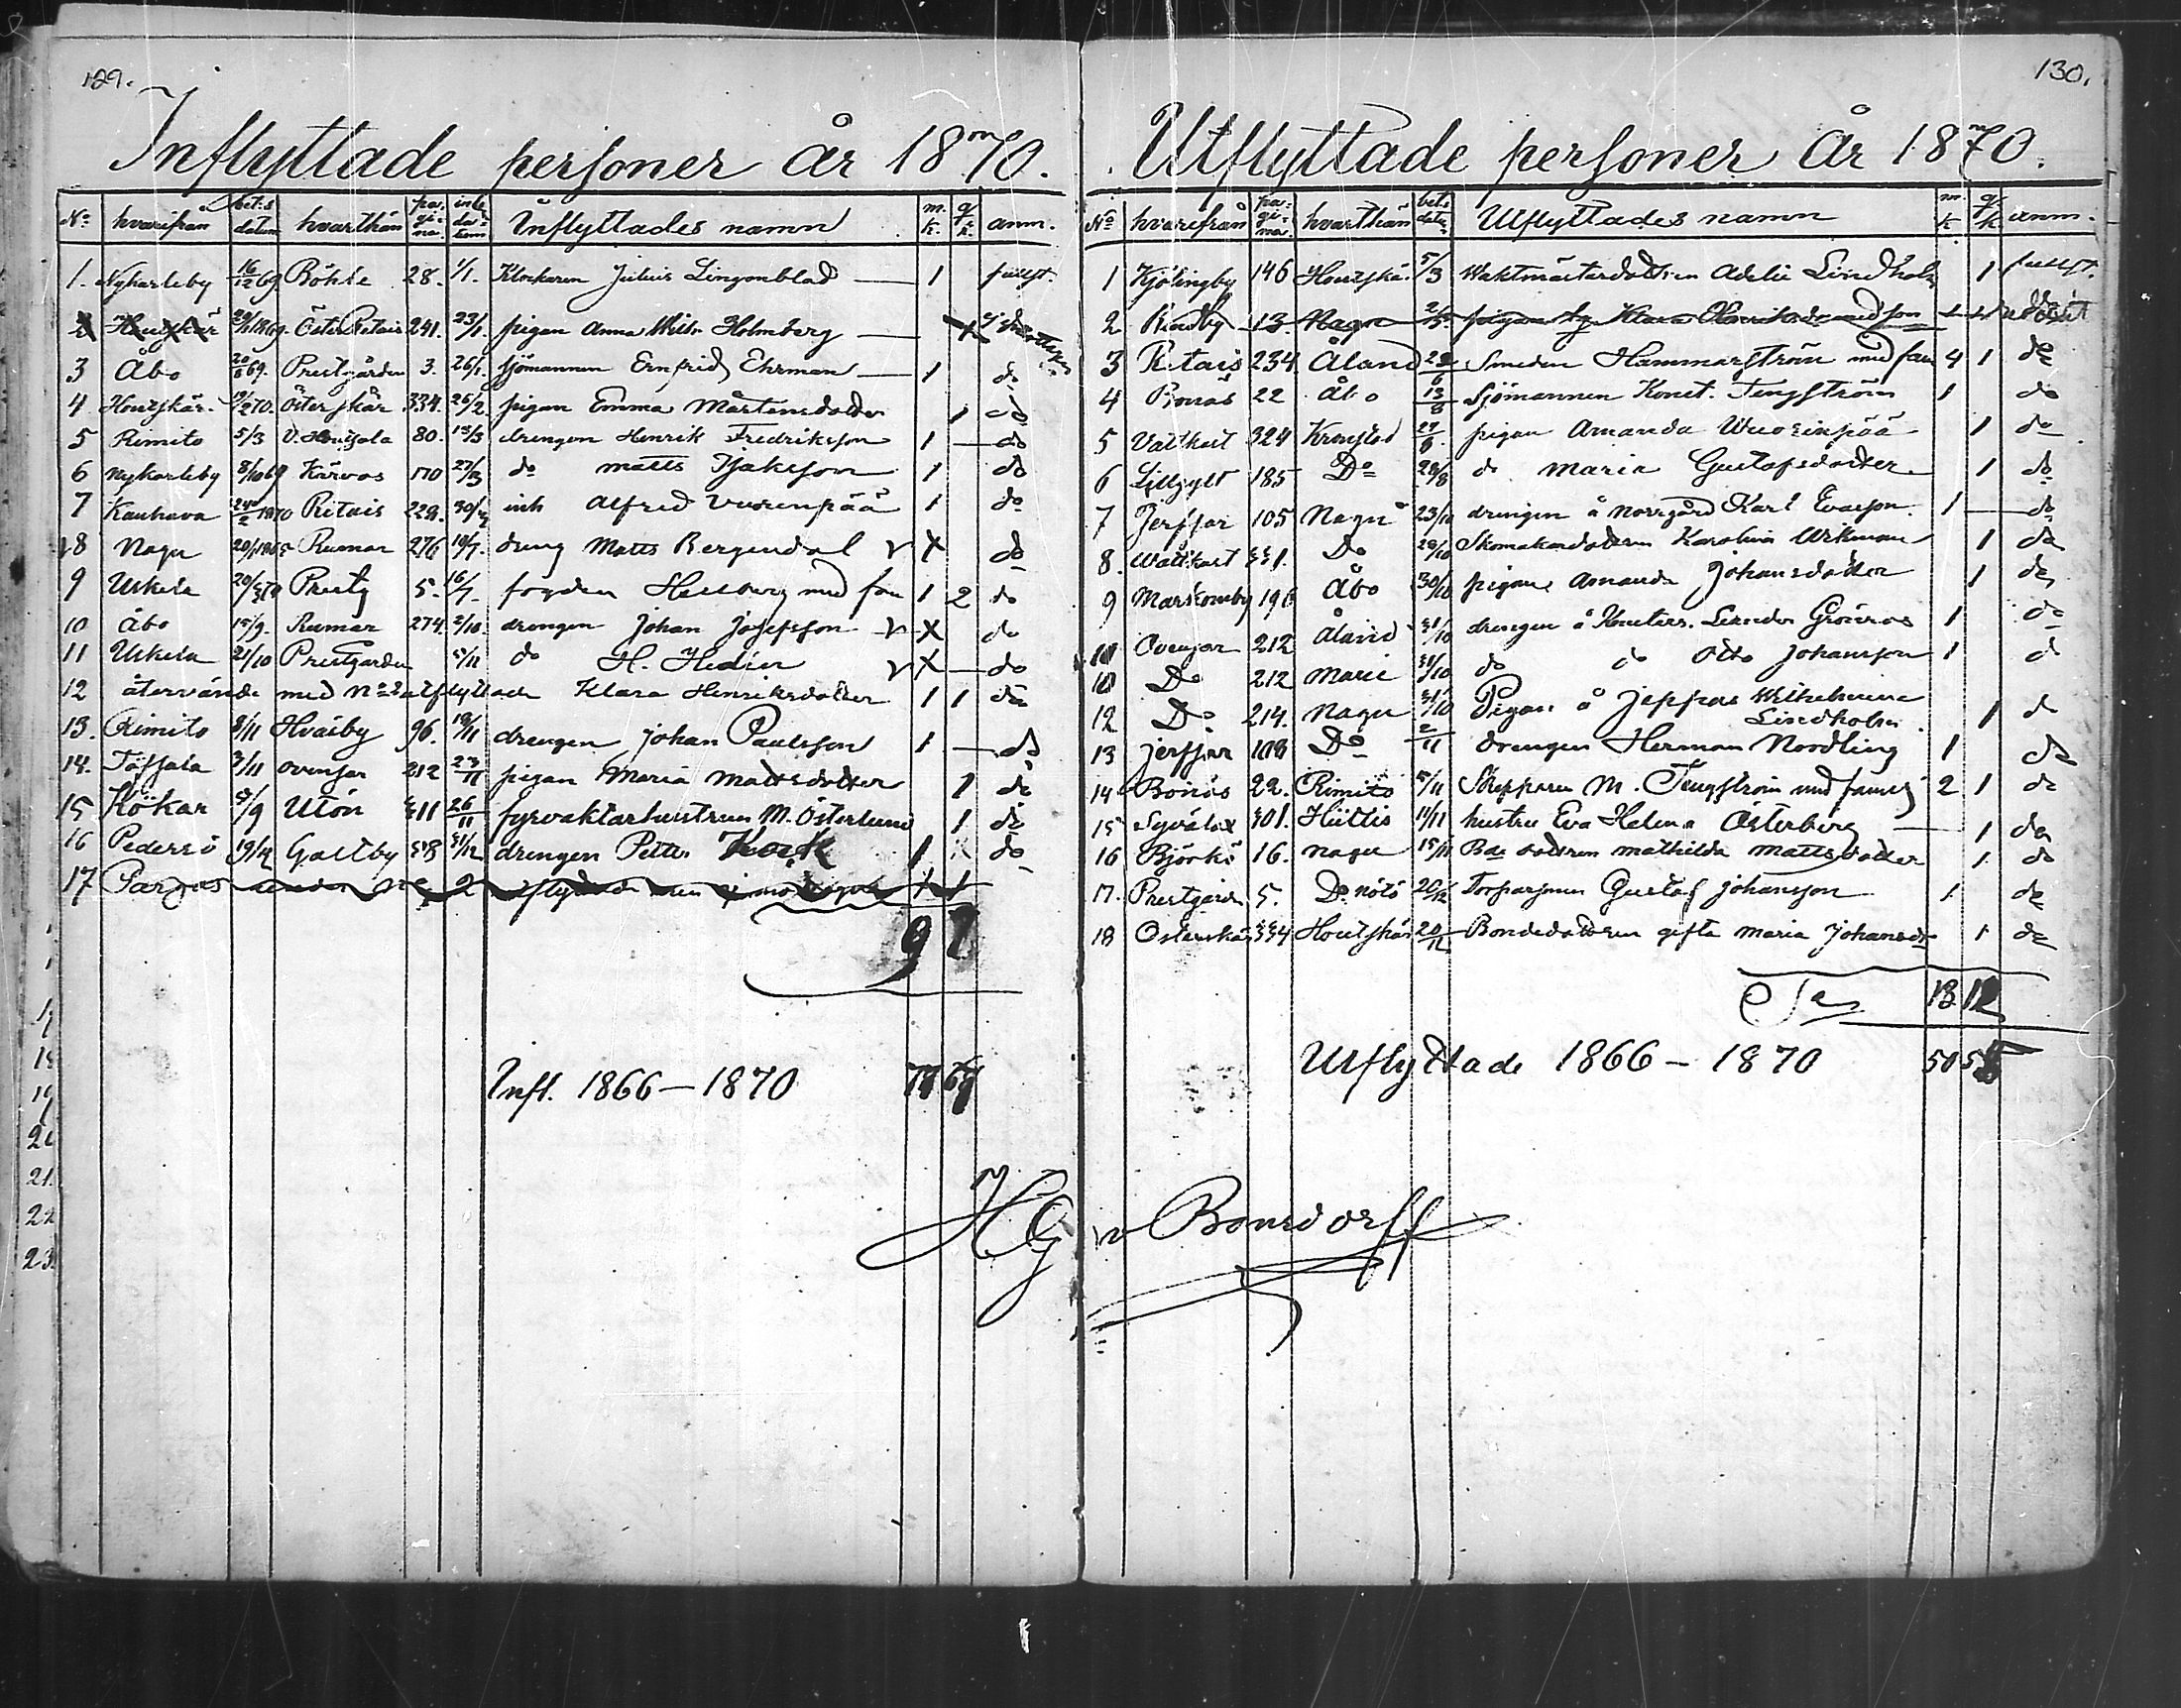 129.
Inflyttade personer år 1870.
No hvarifrån bet:s datum hvarthän pagina inlE datum Inflyttades namn m.k. q.k. anm.
1. Nykarleby 16/12 69 Böhle 28. 1/1. Klockaren Julius Lingonblad 1 fullst.
2 Houtskär 1869. Öster Retais 241. 23/1. pigan Anna Holmberg
3 Åbo 20/6 69. Prestgården 3. 26/1. sjömannen Ernfrid Ehrman 1 do
4. Houtskär. Österskär 334. 26/2. pigan Emma Mårtensdotter 1 do
5 Rimito 5/3 V. 80. 13/3 drengen Henrik Fredriksson 1 do
6 Nykarleby 8/10 69 Kärvos 170 27/3 do Matts 1 do
7 Kauhava 24/2 1870 Retais 229. inh Alfred Vuorenpää 1 do
8 Nagu Rumar 276 19/7. dreng Matts Bergendal X do
9 Uskela Prestg 5. 16/7. fogden med fam 1 2 do
10 Åbo 15/9. Rumar 274. 2/10. drengen Johan Josefsson X do
11 Uskela 21/10 Prestgården 5/11 do H. Hedin X do
12 återvände med No 2 utflyttade Klara Henriksdotter 1 1 do
13. Rimito 8/11 Hväsby 96. 19/11 drengen Johan Paulsson 1 do
14. Töfsala 3/11 Ovensor 212 23/11 pigan Maria Mattsdotter 1 do
15 Kökar 5/9 Utön 311 26/11 fyrvaktarhustrun M. Österlund 1 do
16 Pedersö 19/12 Galtby 31/12 drengen Petter Kock 1 do
17 Pargas under No 2
9
Infl. 1866—1870
H G v Bonsdorff
130.
Utflyttade personer År 1870.
No hvarifrån pagina hvarthän bets datum Utflyttades namn m k q k anm.
1 Kjölingby 146 Houtskär. 5/3 Waktmästardottren Adelie Lindholm 1 fullst.
2 13 Nagu pigan Klara Henriksdr med son
3 Retais 234. Åland Smeden Hammarström med fam 4 1 do
4 Bonäs 22 Åbo 13/8 Sjömannen Konst. Tengström 1 do
5 Vattkast 324 Kronstad 27/8. pigan Amanda Wuorinpää 1 do
6 185 Do 28/8 do Maria Gustafsdotter. 1 do
7 Jerfsor 105 Nagu 23/10 drengen å Norrgård Karl Evasson. 1 do
8. Wattkast 331. Do 29/10 Skomakardottren Karolina Wikman 1 do
9 Marskomby Åbo 30/10 pigan Amanda Johansdotter 1 do
10 Ovensor 212 Åland 31/10 drengen å Leander Grönros 1 do
Do 212 Marie 31/10 do do Otto Johansson 1 do
12 Do 214. Nagu 31/10 Pigan å Jeppas Wilhelmina Lindholm. 1 do
13 Jerfsor 108 Do 2/11 drengen Herman Nordling 1 do
14 Bonäs 22. Rimito 5/11 Skepparen M. Tengström med familj 2 1 do
15 301. Hiittis 11/11 hustru Eva Helena Österberg 1 do
16 Björkö 16. Nagu 15/11 Bde dottren Mathilda Mattsdotter 1 do
17. Prestgården 5. Do nötö 20/12 Torparsonen Gustaf Johansson 1 do
18 Österskär 334 Houtskär 20/12 Bondedottren gifta Maria Johansdr 1 do
Sa 13 12
Utflyttade 1866 — 1870 50